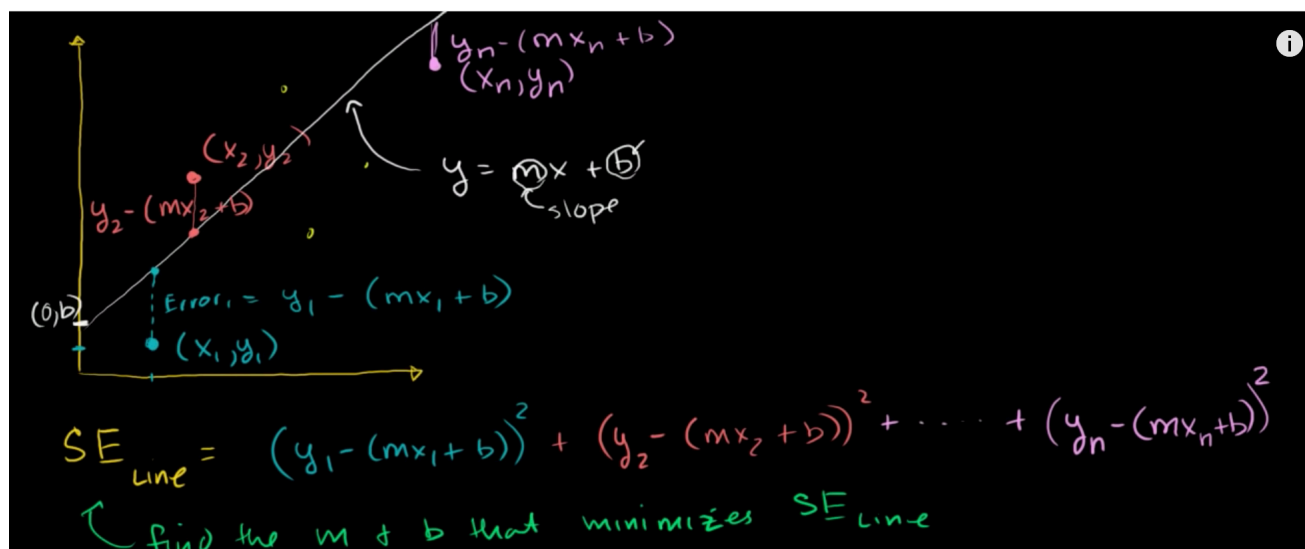 yₙ - (mxₙ + b)
(xₙ, yₙ)
(x₂, y₂)
y = mx + b
y₂ - (mx₂ + b)
slope
(0,b)
Error₁ = y₁ - (mx₁ + b)
(x₁, y₁)
SE Line = (y₁ - (mx₁ + b))² + (y₂ - (mx₂ + b))² + ..... + (yₙ - (mxₙ + b))²
find the m & b that minimizes SE Line